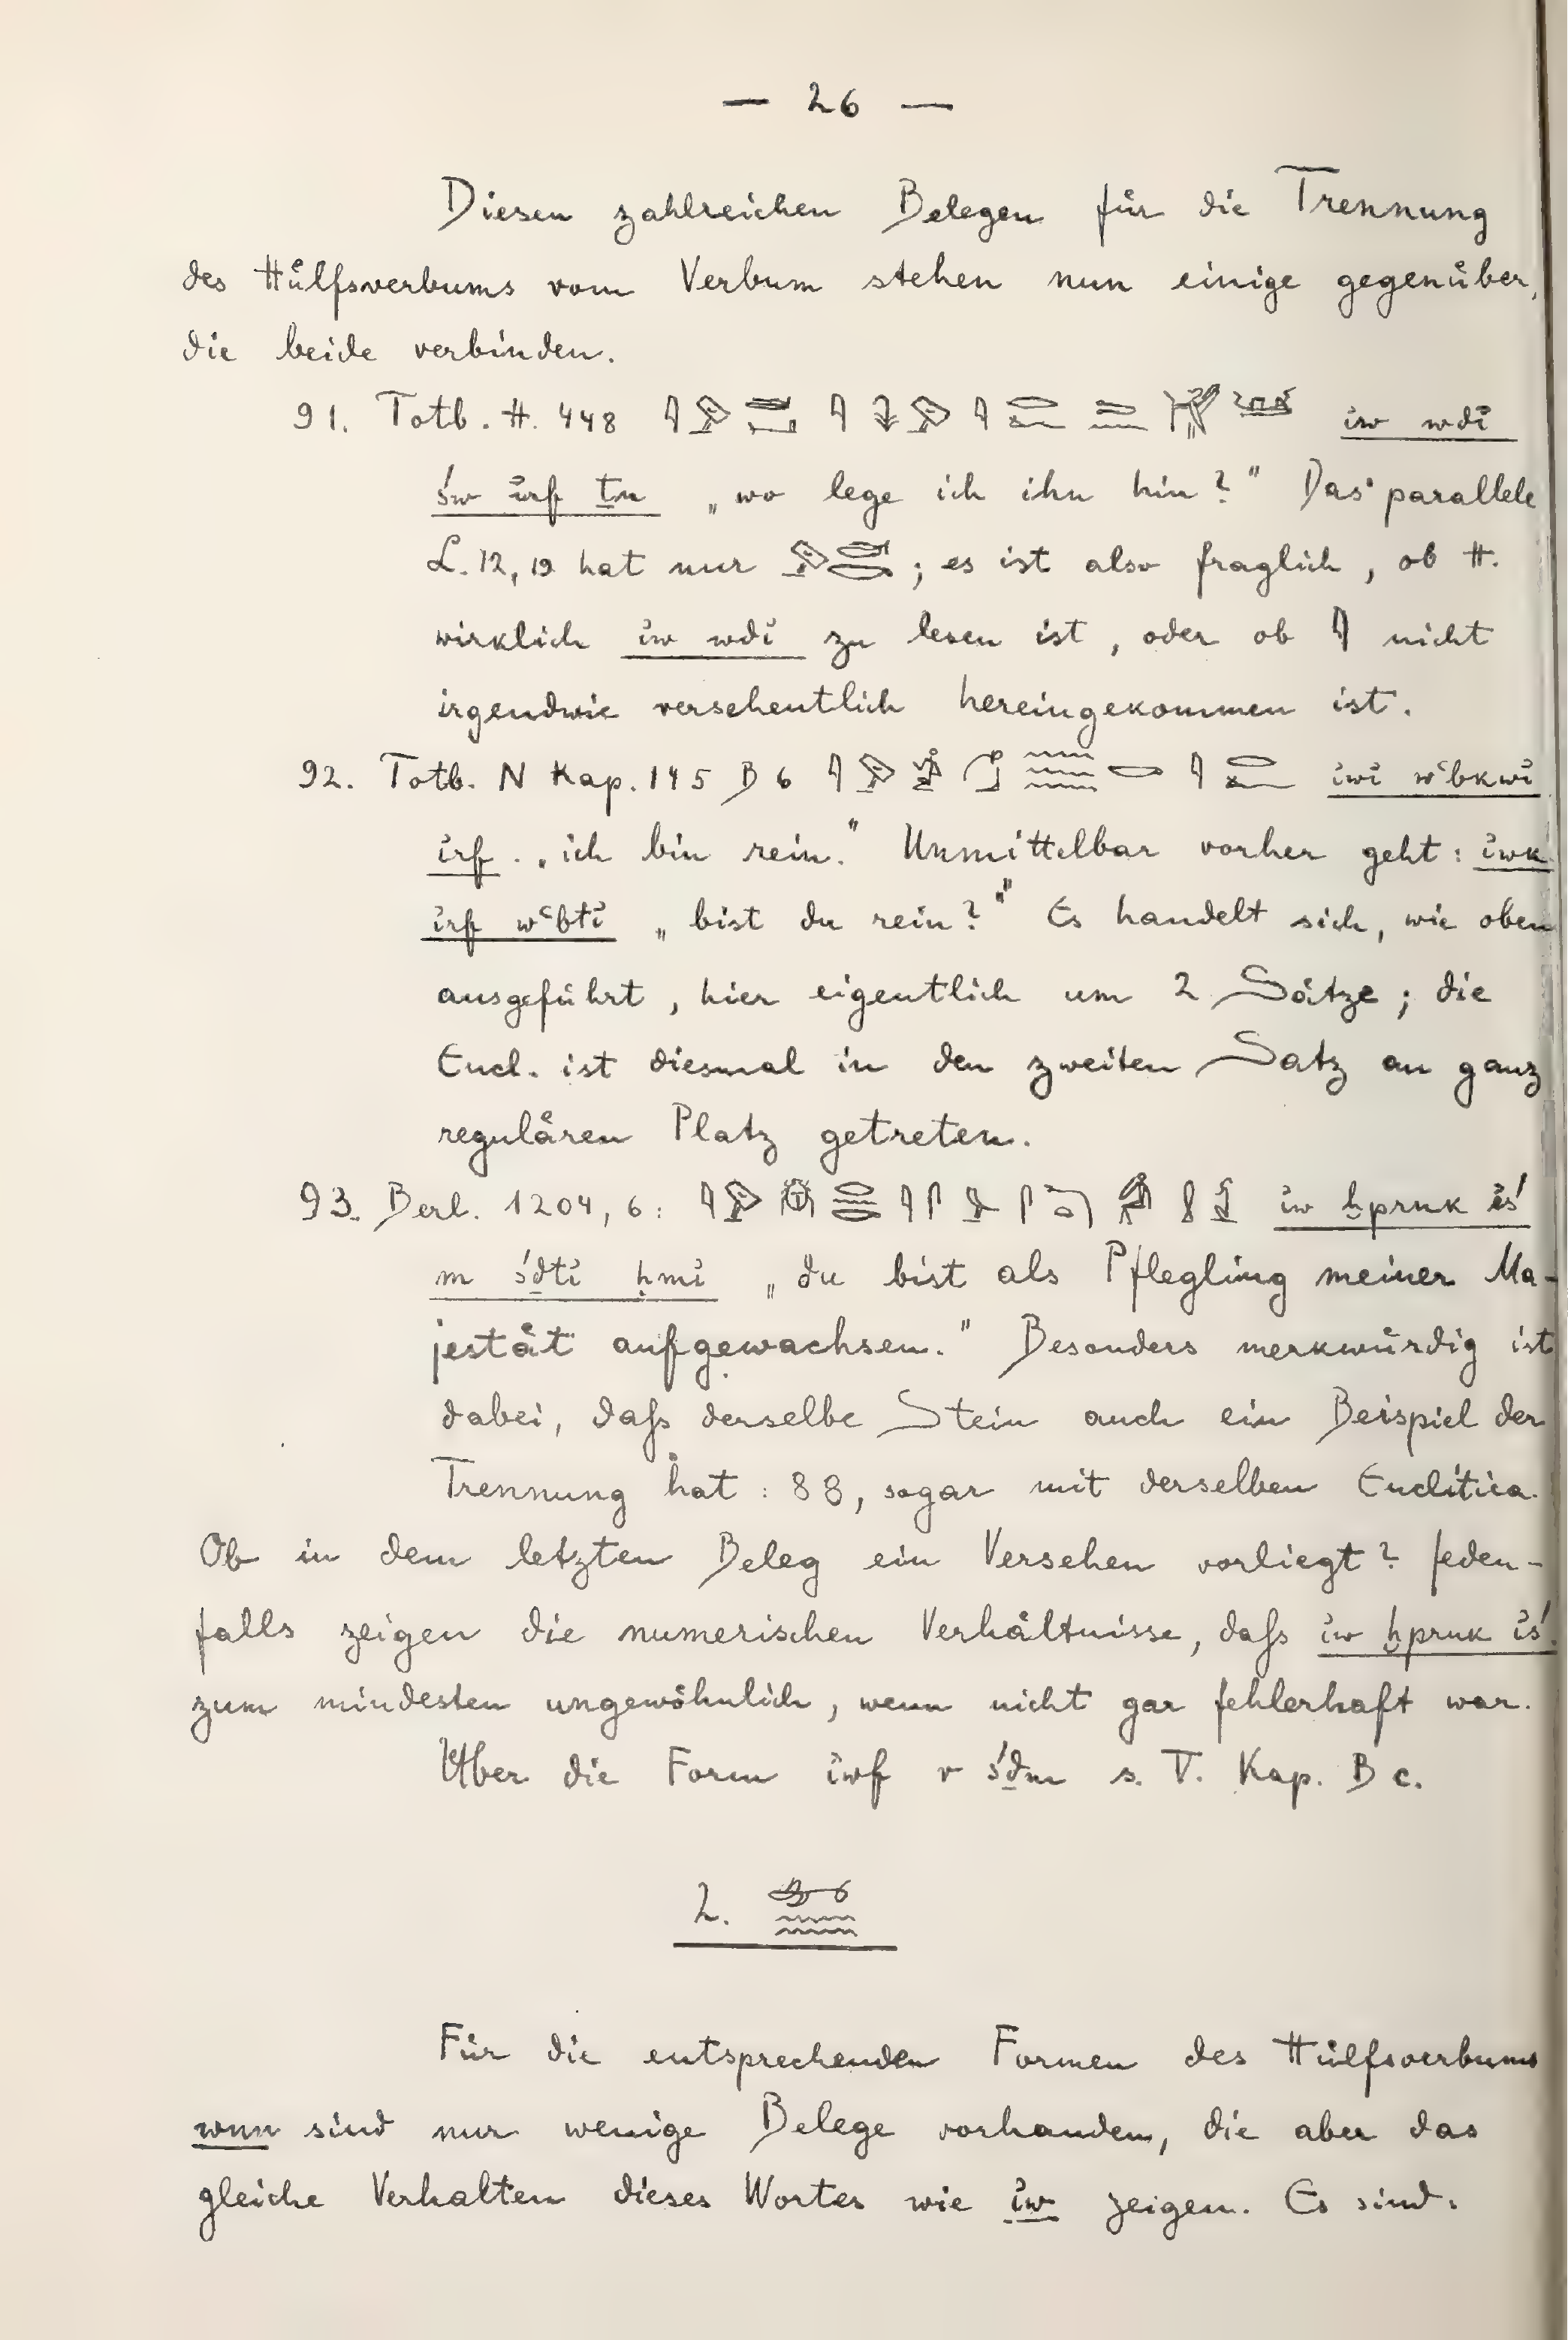 — 26 —
Diesen zahlreichen Belegen für die Trennung
des Hülfsverbums vom Verbum stehen nun einige gegenüber,
die beide verbinden.
91. Totb. H. 448 iw wdi
św irf tn „wo lege ich ihn hin?" Das parallele
L. 12, 19 hat nur ; es ist also fraglich, ob H.
wirklich iw wdi zu lesen ist, oder ob 𓇋 nicht
irgendwie versehentlich hereingekommen ist.
92. Totb. N Kap. 145 B 6 iwi wʿbkwi
irf. „ich bin rein." Unmittelbar vorher geht: iwk
irf wʿbti „bist du rein?" Es handelt sich, wie oben
ausgeführt, hier eigentlich um 2 Sätze; die
Encl. ist diesmal in den zweiten Satz an ganz
regulären Platz getreten.
93. Berl. 1204, 6: iw ḫprnk iś
m śḏti ḥmi „du bist als Pflegling meiner Ma-
jestät aufgewachsen." Besonders merkwürdig ist
dabei, daſs derselbe Stein auch ein Beispiel der
Trennung hat: 88, sogar mit derselben Enclitica.
Ob in dem letzten Beleg ein Versehen vorliegt? Jeden-
falls zeigen die numerischen Verhältnisse, daſs iw ḫprnk iś
zum mindesten ungewöhnlich, wenn nicht gar fehlerhaft war.
Über die Form iwf r śḏm s. V. Kap. B c.
2.
Für die entsprechenden Formen des Hülfsverbums
wnn sind nur wenige Belege vorhanden, die aber das
gleiche Verhalten dieses Wortes wie iw zeigen. Es sind: